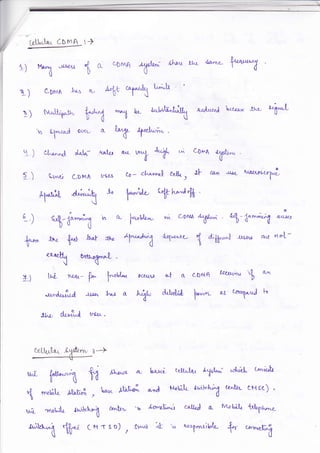 Cellular CDMA :→
1.) Many users of a CDMA system share the same frequency.
2.) CDMA has a soft capacity limit.
3.) Multipath fading may be substantially reduced because the signal
is spread over a large spectrum.
4.) Channel data rates are very high in CDMA system.
5.) Since CDMA uses co-channel cells, it can use macroscopic
spatial diversity to provide soft handoff.
6.) Self-jamming is a problem in CDMA system. Self-jamming arises
from the fact that the spreading sequence of different users are not
exactly orthogonal.
7.) The near-far problem occurs at a CDMA receiver if an
undesired user has a high detected power as compared to
the desired user.
Cellular System :→
The following fig shows a basic cellular system which consists
of mobile station, base station and Mobile switching center (MSC).
The mobile switching center is sometimes called a Mobile telephone
switching office (MTSO), since it is responsible for connecting